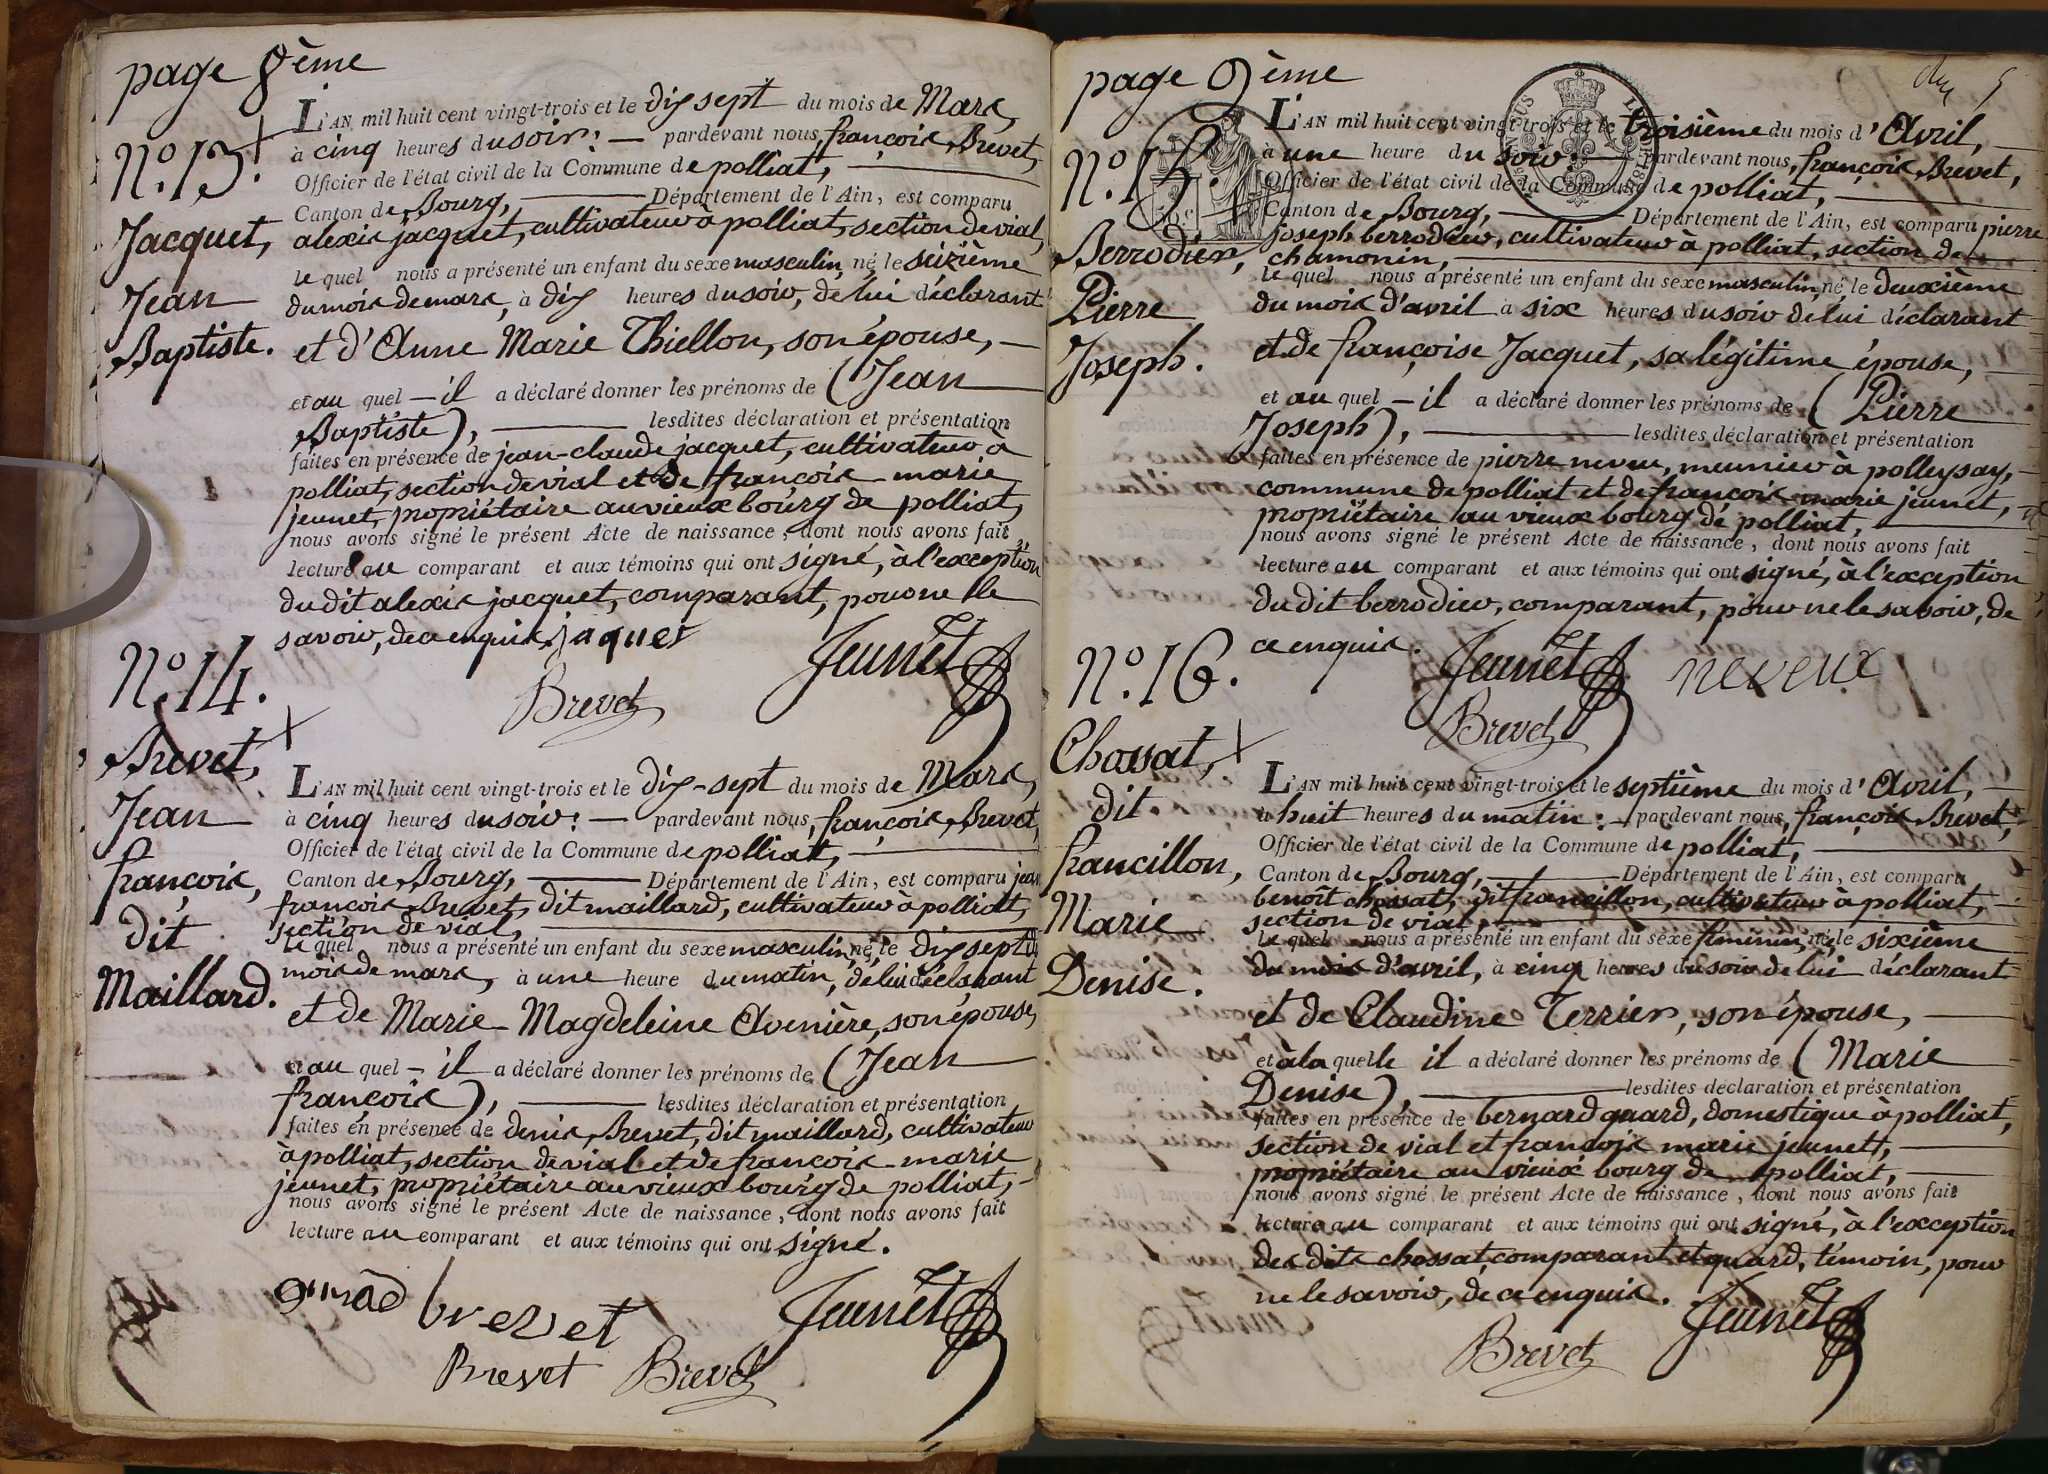 page 8ème
N.º 13.
Jacquet,
Jean
Baptiste.
L'AN mil huit cent vingt-trois et le dix sept du mois de Mars,
à cinq heures du soir : — pardevant nous, françois Brevet,
Officier de l'état civil de la Commune de polliat,
Canton de Bourg, Département de l'Ain, est comparu
alexis jacquet, cultivateur à polliat, section de vial,
le quel nous a présenté un enfant du sexe masculin, né le seizième
du mois de mars, à dix heures du soir, de lui déclarant
et d'Anne Marie Thiellon, son épouse, —
et au quel — il a déclaré donner les prénoms de (Jean
Baptiste), lesdites déclaration et présentation
faites en présence de jean-claude jacquet, cultivateur à
polliat, section de vial et de françois-marie
jeunet, propriétaire au vieux bourg de polliat,
nous avons signé le présent Acte de naissance, dont nous avons fait
lecture au comparant et aux témoins qui ont signé, à l'exception
du dit alexis jacquet, comparant, pour ne le
savoir, de ce enquis. jaquet
Jeunet
Brevet
N.º 14.
Brevet,
Jean
françois,
dit
Maillard.
L'AN mil huit cent vingt-trois et le dix-sept du mois de Mars,
à cinq heures du soir : — pardevant nous, françois Brevet,
Officier de l'état civil de la Commune de polliat,
Canton de Bourg, Département de l'Ain, est comparu jean
françois Brevet, dit maillard, cultivateur à polliat,
section de vial,
le quel nous a présenté un enfant du sexe masculin, né le dix sept du
mois de mars, à une heure du matin, de lui déclarant
et de Marie-Magdeleine Avenière, son épouse,
et au quel — il a déclaré donner les prénoms de (Jean
françois), lesdites déclaration et présentation
faites en présence de denis Brevet, dit maillard, cultivateur
à polliat, section de vial et de françois-marie
jeunet, propriétaire au vieux bourg de polliat, —
nous avons signé le présent Acte de naissance, dont nous avons fait
lecture au comparant et aux témoins qui ont signé.
brevet
Jeunet
Brevet Brevet
page 9ème
N.º 15.
Berrodier,
Pierre
Joseph.
L'AN mil huit cent vingt-trois et le troisième du mois d'Avril,
à une heure du soir : — pardevant nous, françois Brevet,
Officier de l'état civil de la Commune de polliat,
Canton de Bourg, Département de l'Ain, est comparu pierre
joseph berrodier, cultivateur à polliat, section de
chamonin,
le quel nous a présenté un enfant du sexe masculin, né le deuxième
du mois d'avril à six heures du soir de lui déclarant
et de françoise Jacquet, sa légitime épouse,
et au quel — il a déclaré donner les prénoms de (Pierre
Joseph), lesdites déclaration et présentation
faites en présence de pierre neveu, meunier à polleysay,
commune de polliat et de françois marie jeunet,
propriétaire au vieux bourg de polliat,
nous avons signé le présent Acte de naissance, dont nous avons fait
lecture au comparant et aux témoins qui ont signé, à l'exception
du dit berrodier, comparant, pour ne le savoir, de
ce enquis.
Jeunet neveux
Brevet
N.º 16.
Chossat,
dit
francillon,
Marie
Denise.
L'AN mil huit cent vingt-trois et le septième du mois d'Avril,
à huit heures du matin : — pardevant nous, françois Brevet,
Officier de l'état civil de la Commune de polliat,
Canton de Bourg, Département de l'Ain, est comparu
benoît chossat, dit francillon, cultivateur à polliat,
section de vial,
le quel nous a présenté un enfant du sexe féminin, né le sixième
du mois d'avril, à cinq heures du soir de lui déclarant
et de Claudine Terrier, son épouse,
et à la quelle il a déclaré donner les prénoms de (Marie
Denise), lesdites déclaration et présentation
faites en présence de bernard guard, domestique à polliat,
section de vial et françois marie jeunet,
propriétaire au vieux bourg de polliat,
nous avons signé le présent Acte de naissance, dont nous avons fait
lecture au comparant et aux témoins qui ont signé, à l'exception
des dits chossat, comparant et guard, témoin, pour
ne le savoir, de ce enquis.
Jeunet
Brevet